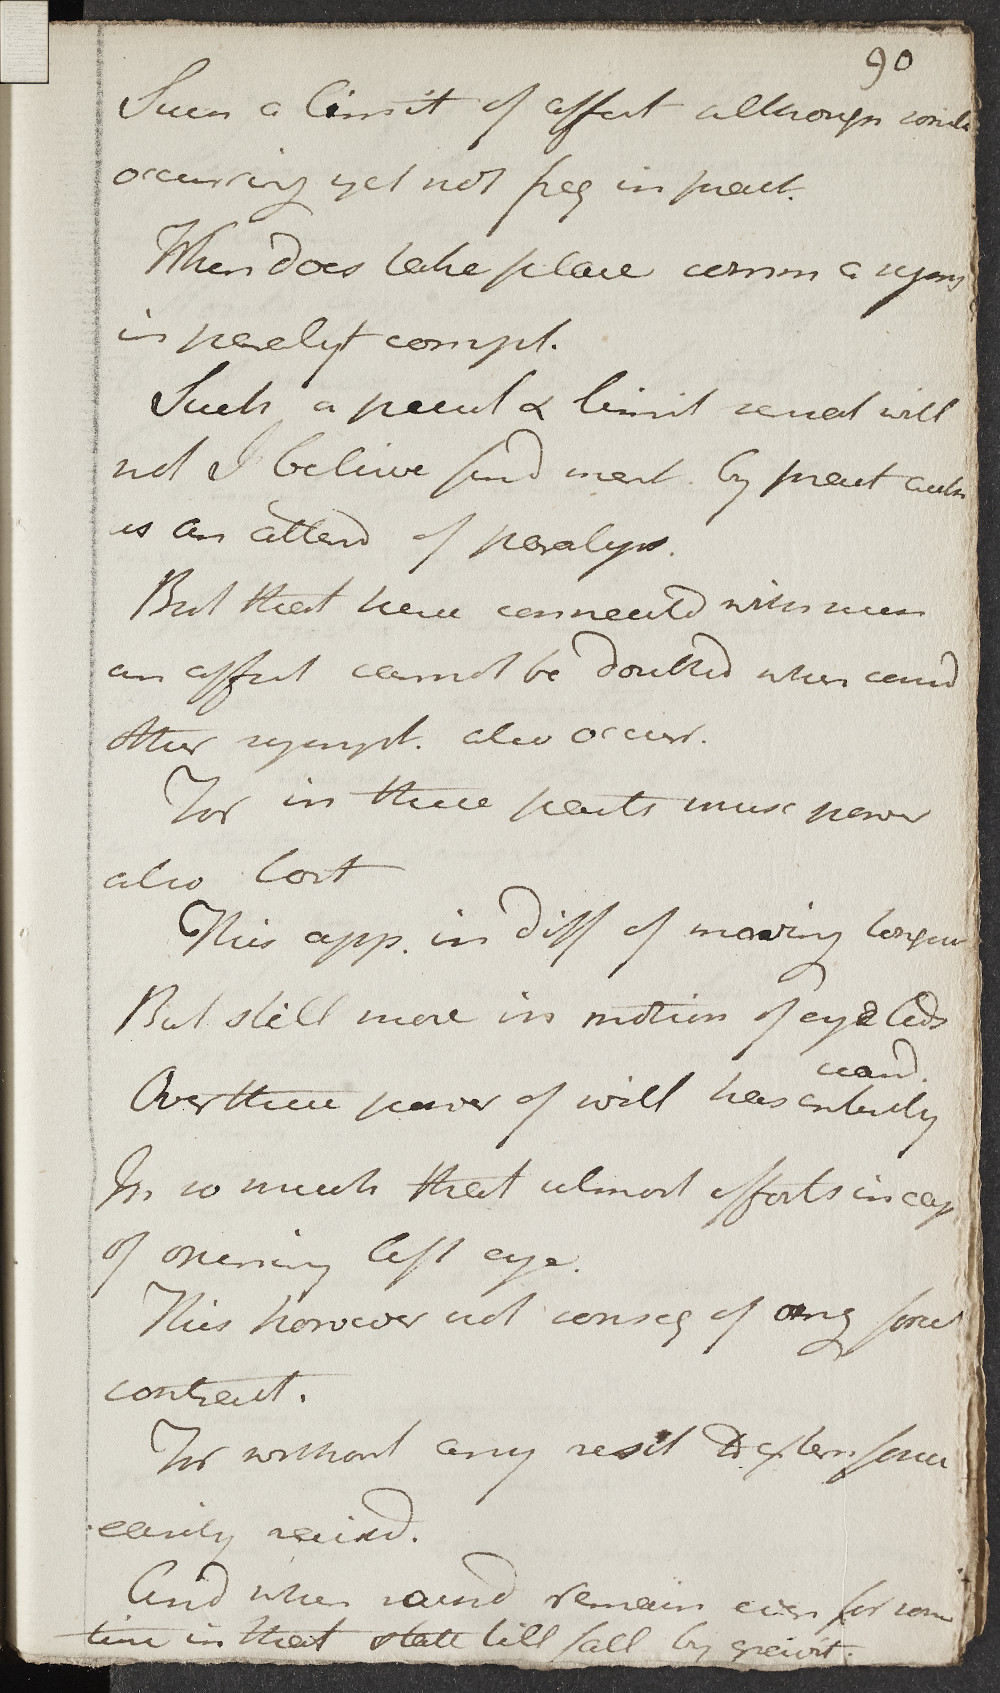 90
Such a limit of affect although
occurring yet not freq in pract.
When does take place comm a symp
in paralyt compl.
Such a pecul & limit remark will
not I believe find ment. by pract auth
as an attend of paralys.
But that here connected with such
an affect cannot be doubted when consid
other sympt. also occurr.
For in these parts musc power
also lost
This app. in diff of moving tongue
But still more in motion of eye lids
Over these power of will has entirely
ceasd.
In so much that utmost efforts incap
of opening left eye.
This however not conseq of any
contract.
For without any resist to extern force
easily raisd.
And when raisd remain even for some
time in that state till fall by gravit.